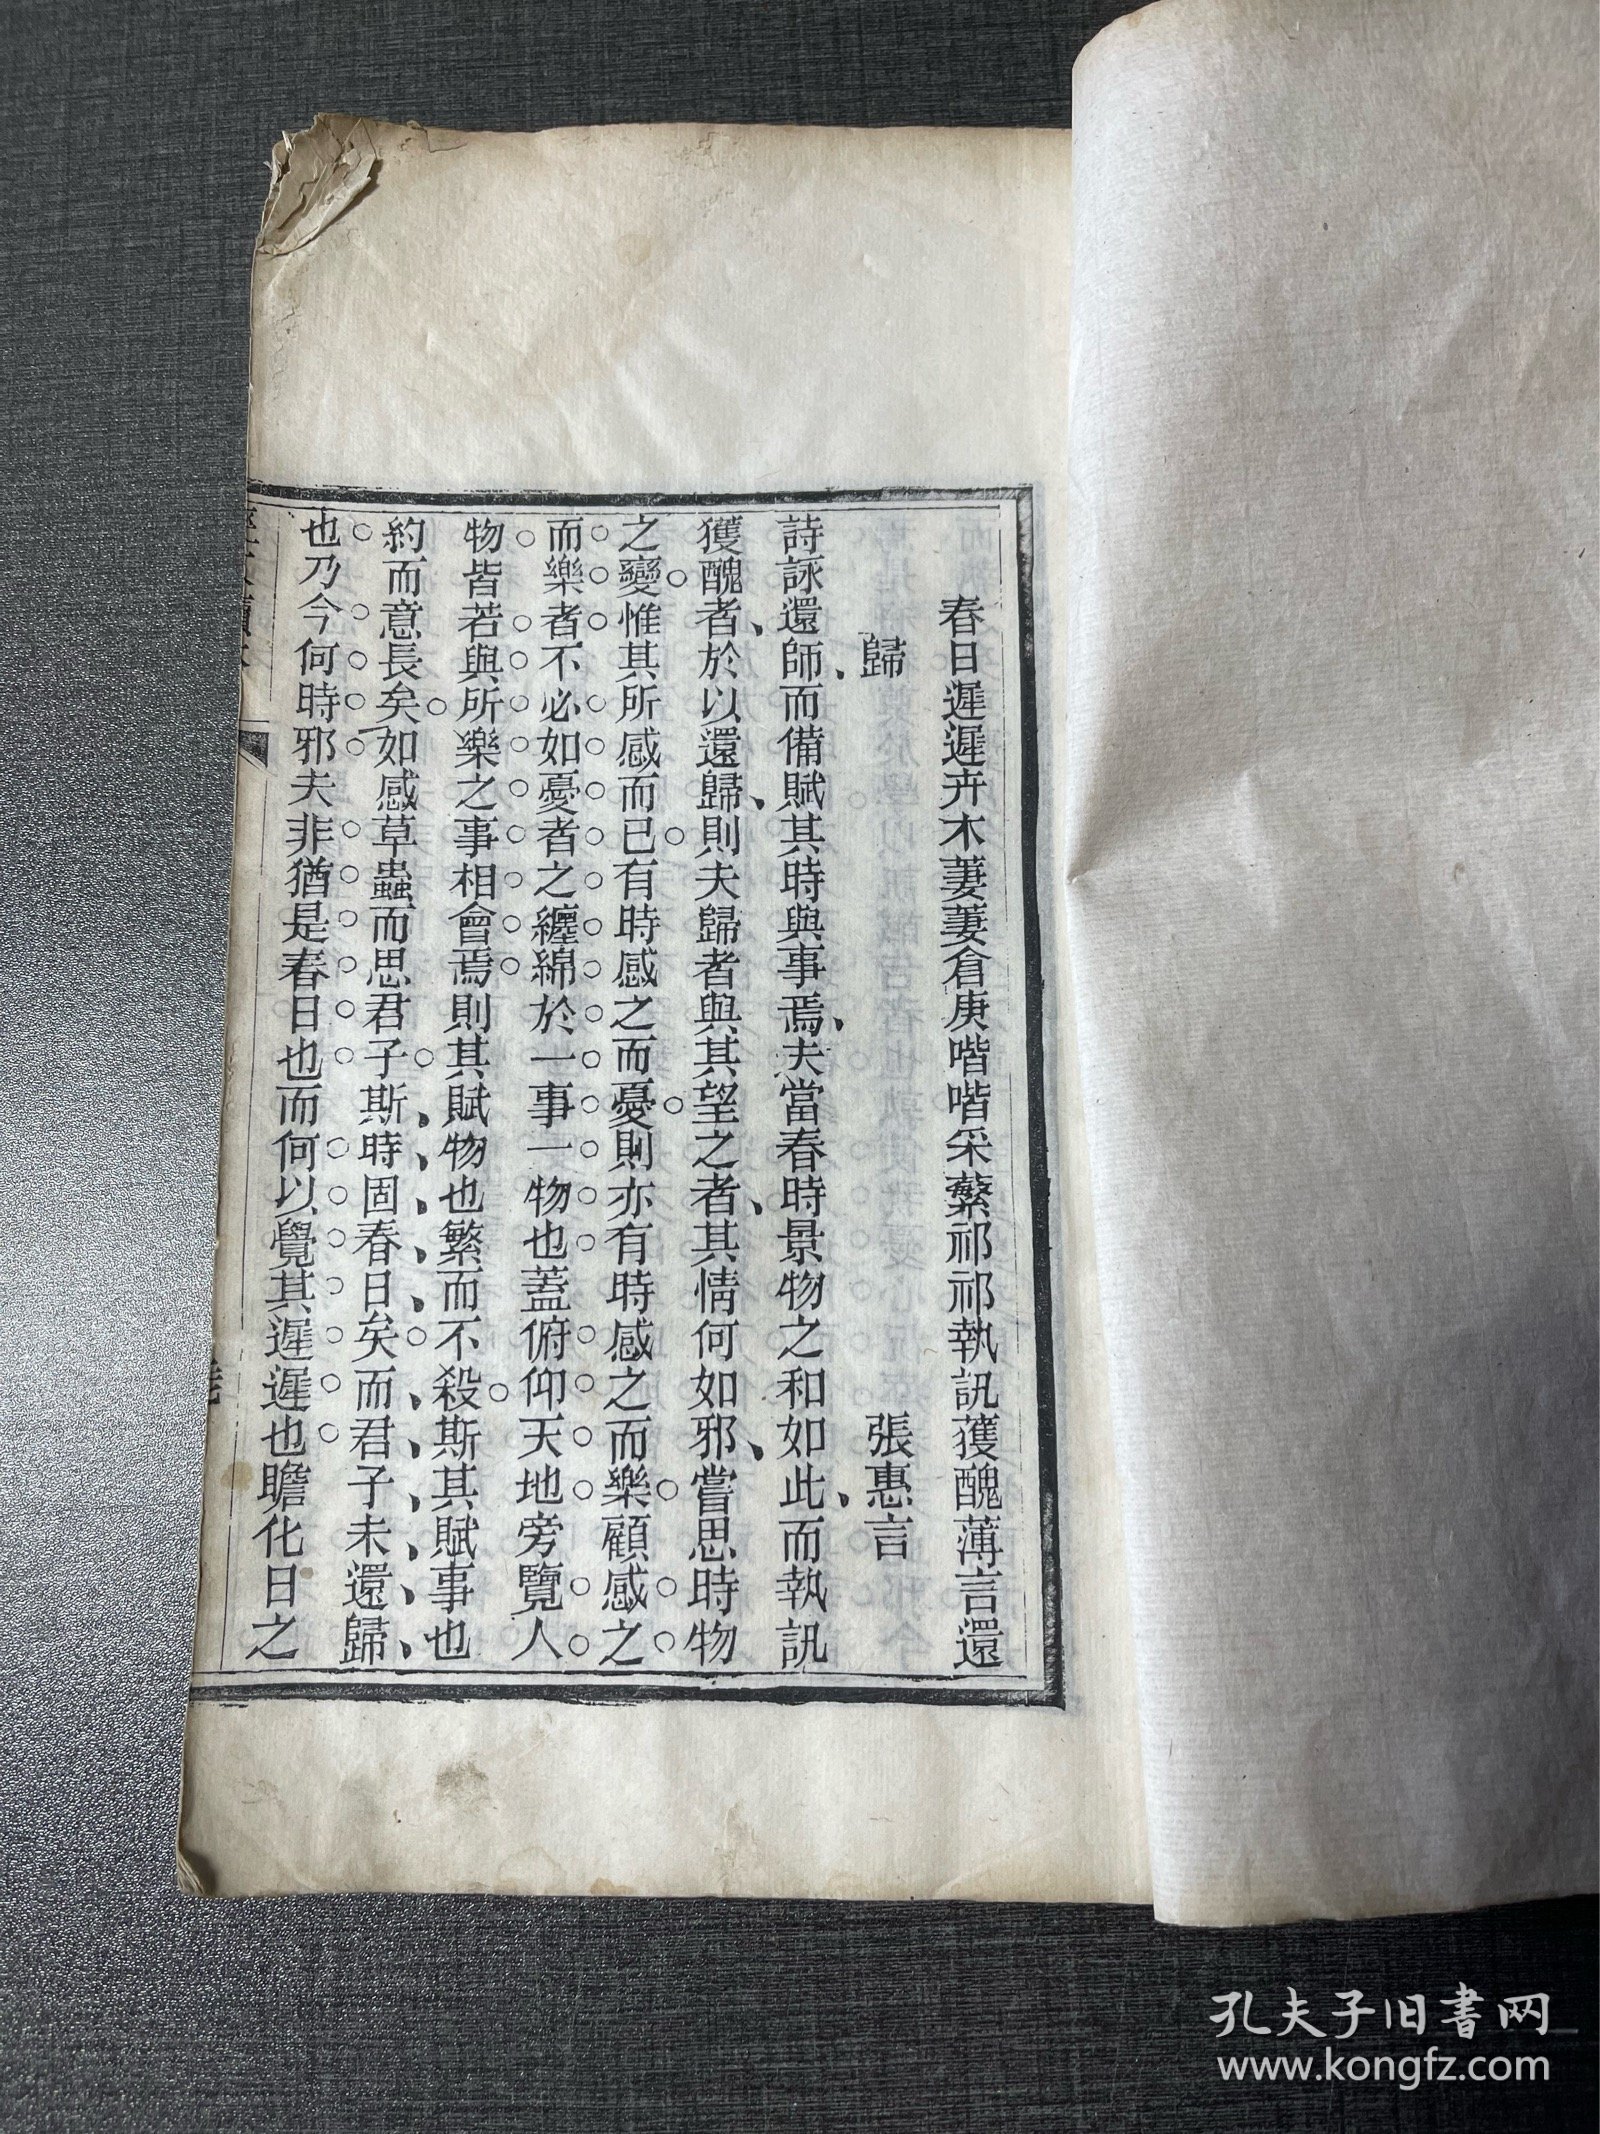 春日遲遲卉木萋萋倉庚喈喈采蘩祁祁執訊獲醜薄言還
歸
張惠言
詩詠還師而備賦其時與事焉夫當春時景物之和如此而執訊
獲醜者於以還歸則夫歸者與其望之者其情何如邪嘗思時物
之變惟其所感而已有時感之而憂則亦有時感之而樂顧感之
而樂者不必如憂者之纏綿於一事一物也蓋俯仰天地旁覽人
物皆若與所樂之事相會焉則其賦物也繁而不殺斯其賦事也
約而意長矣如感草蟲而思君子斯時固春日矣而君子未還歸
也乃今何時邪夫非猶是春日也而何以覺其遲遲也瞻化日之
孔夫子旧书网
www.kongfz.com